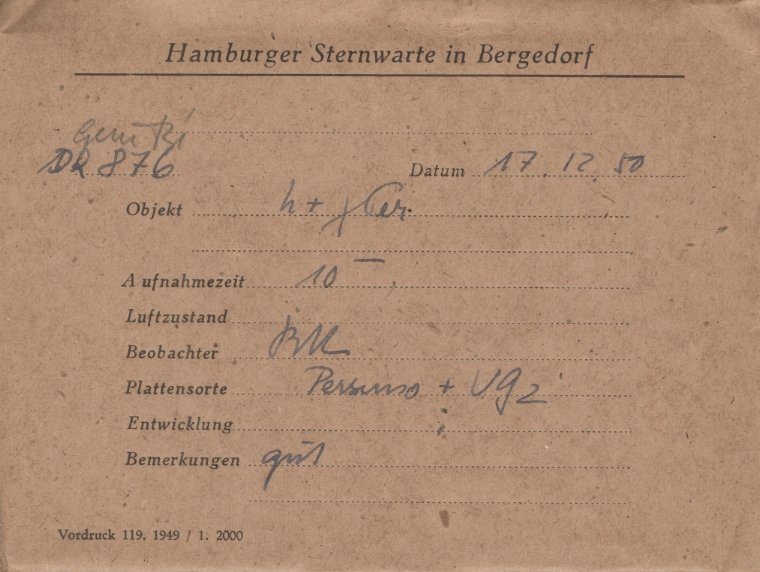 Hamburger Sternwarte in Bergedorf
DR 876
Datum 17. 12. 50
Objekt h + χ Per.
Aufnahmezeit 10
Luftzustand
Beobachter
Plattensorte + UG2
Entwicklung
Bemerkungen gut
Vordruck 119. 1949 / 1. 2000